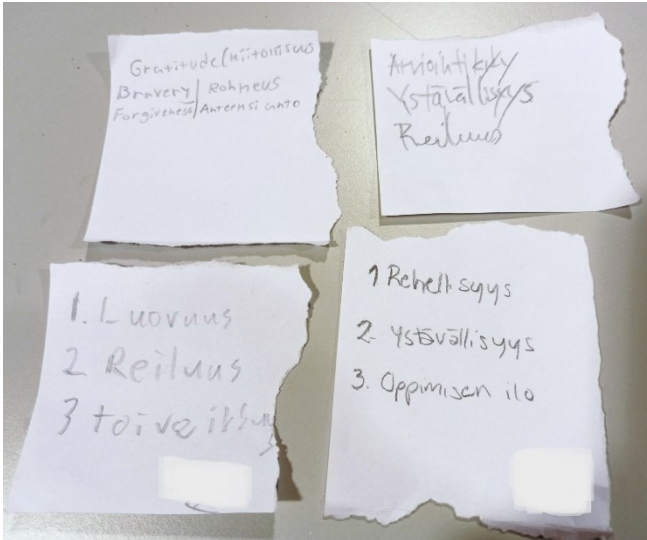 Gratitude (Kiitollisuus
Bravery / Rohkeus
Forgiveness / Anteeksi anto
Arviointikyky
Ystävällisyys
Reiluus
1. Luovuus
2 Reiluus
3 toiveikkuus
1 Rehellisyys
2. Ystävällisyys
3. Oppimisen ilo